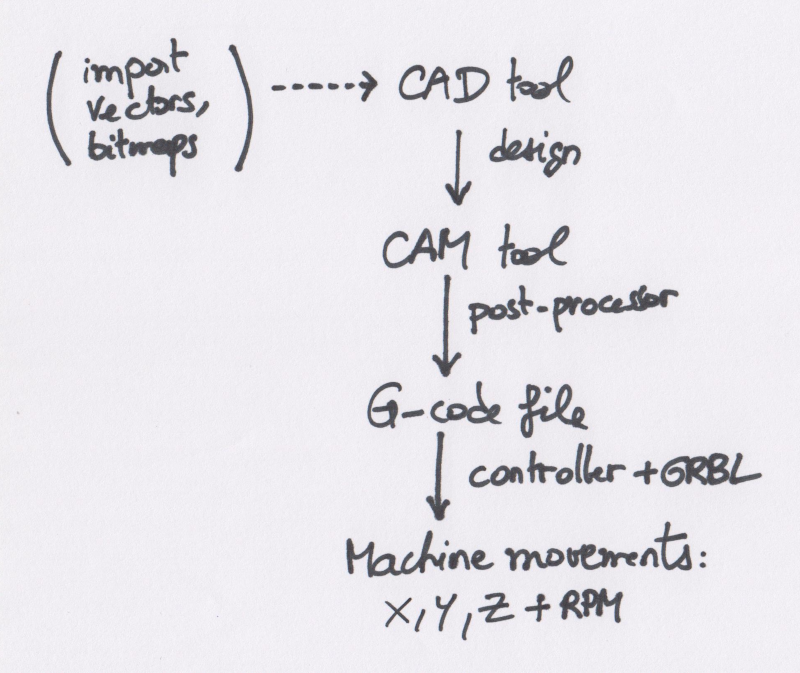 (import
vectors,
bitmaps)
CAD tool
design
CAM tool
post-processor
G-code file
controller + GRBL
Machine movements:
X, Y, Z + RPM